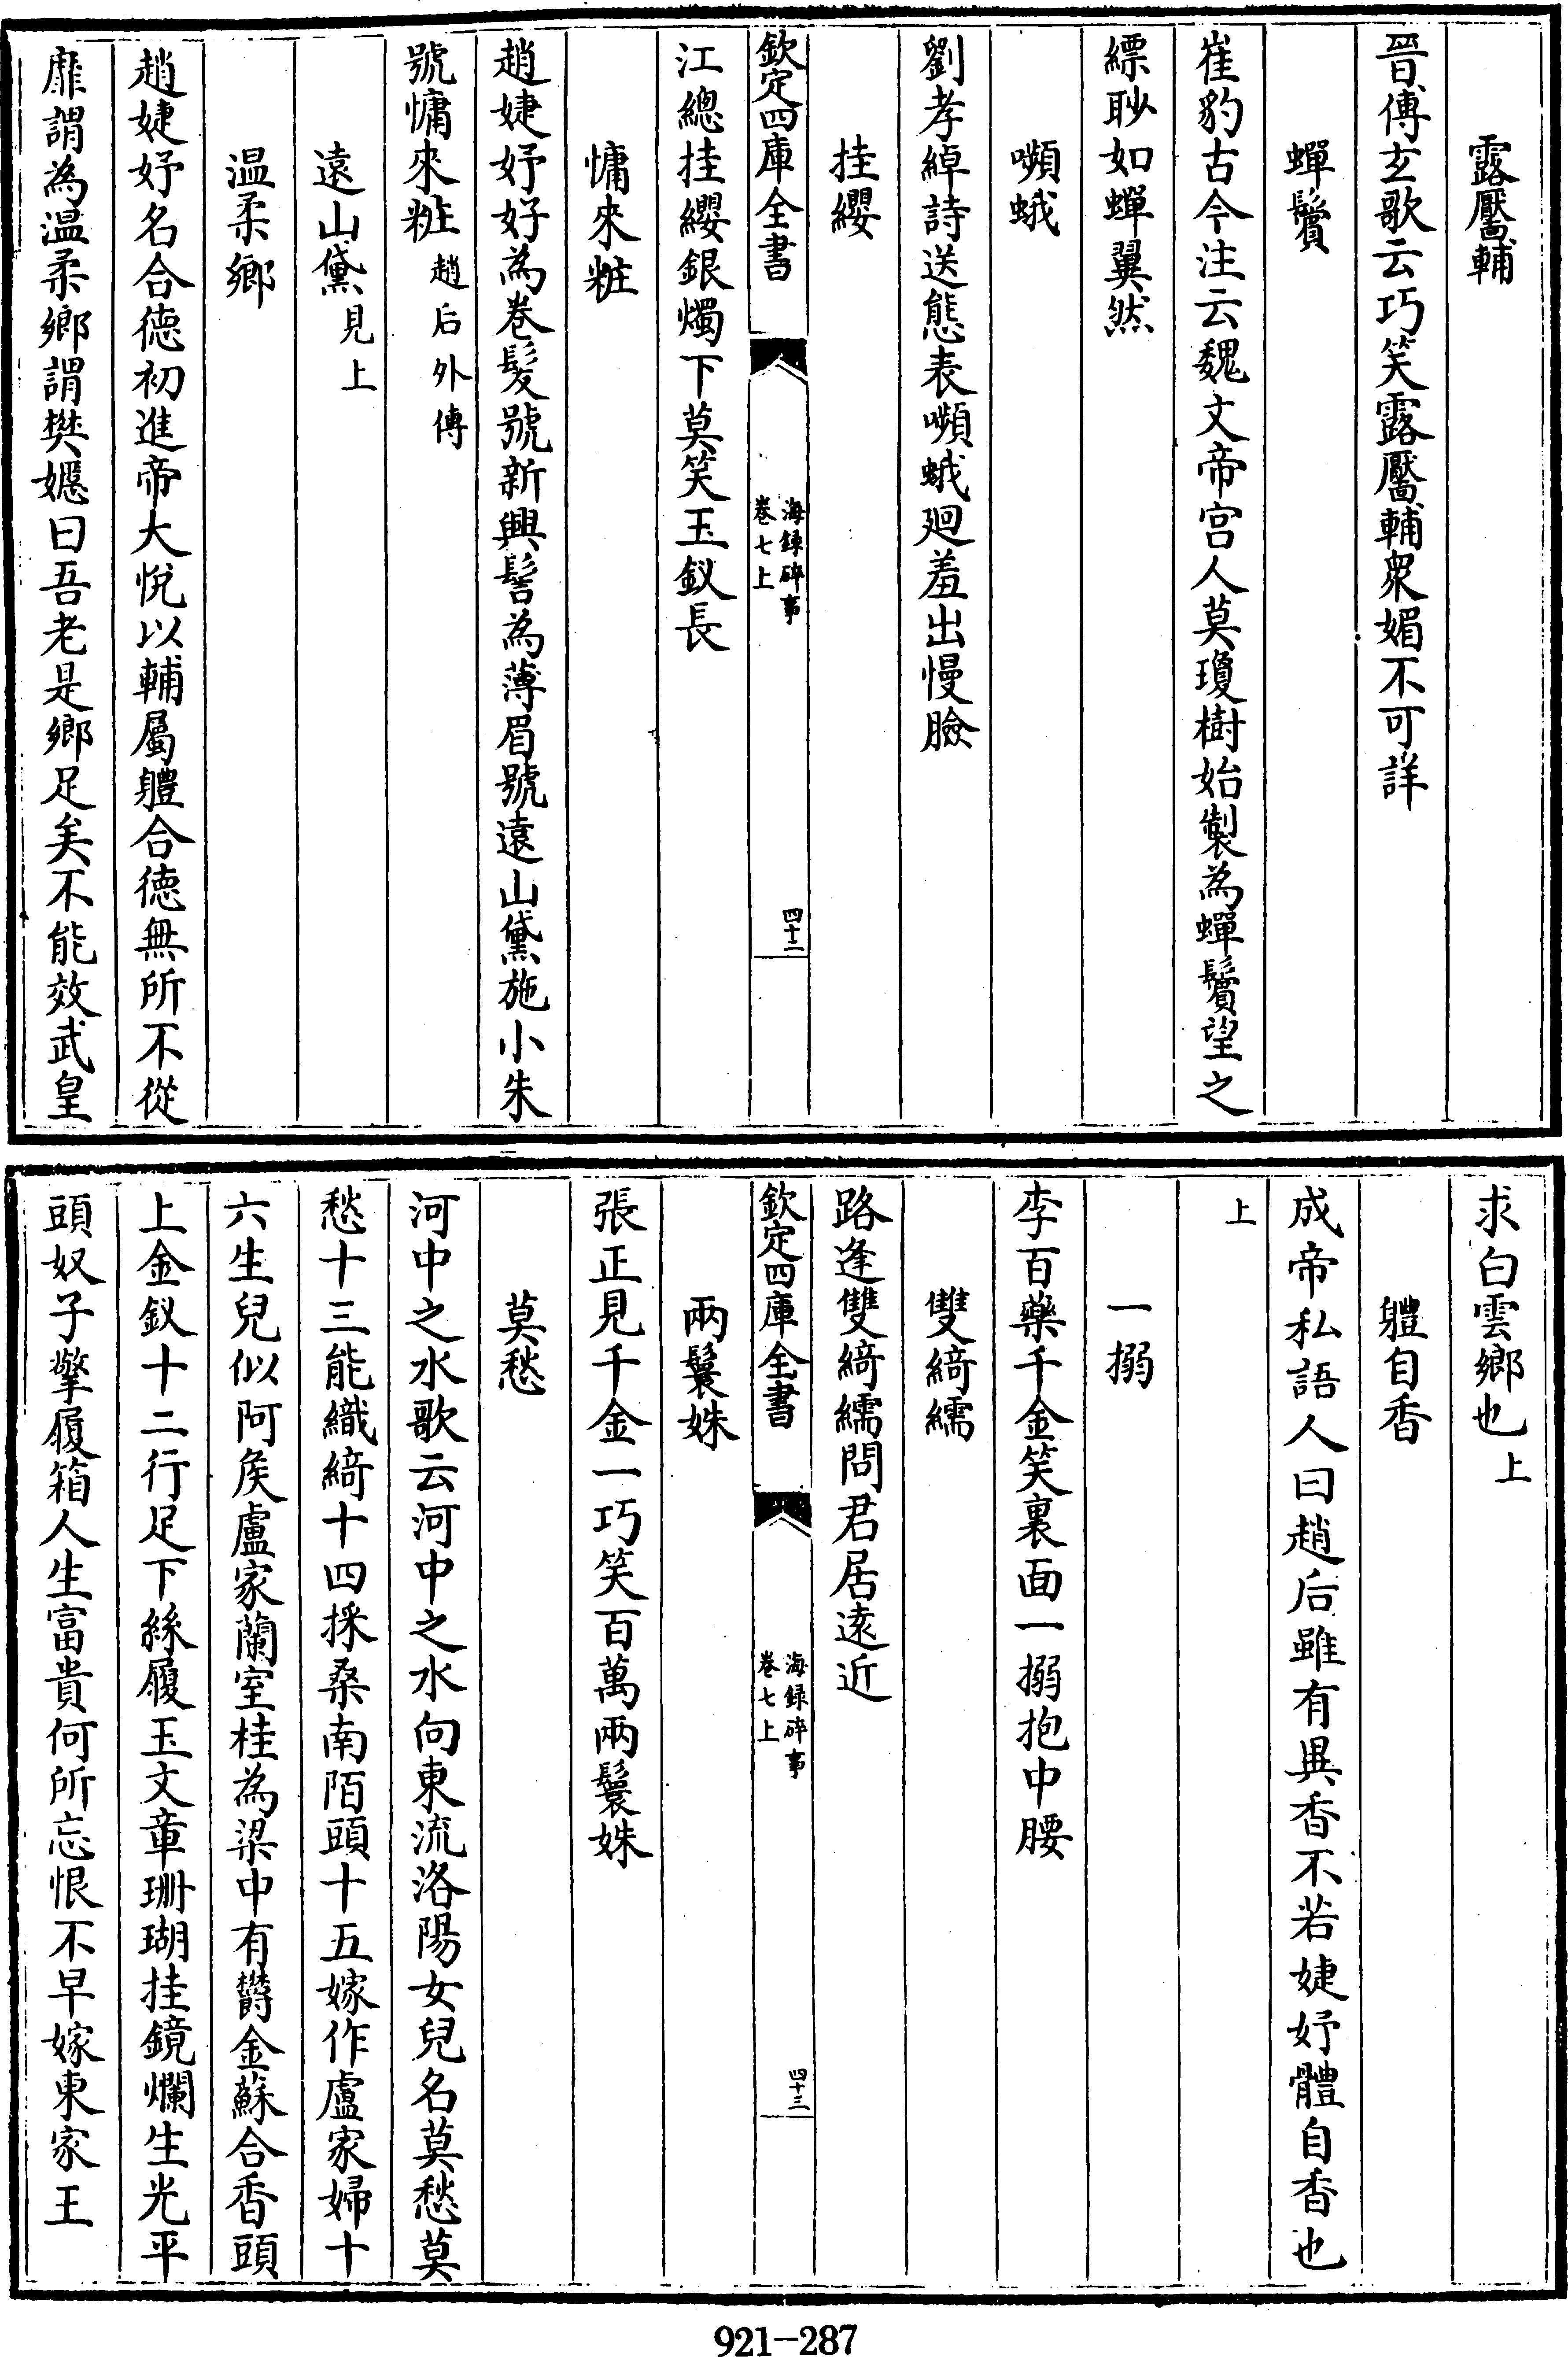 露靨輔
晉傅玄歌云巧笑露靨輔衆媚不可詳
蟬鬢
崔豹古今注云魏文帝宮人莫瓊樹始製為蟬鬢望之
縹眇如蟬翼然
嚬蛾
劉孝綽詩送態表嚬蛾廻羞出慢臉
挂纓
欽定四庫全書
海録碎事
卷七上
四十二
江總挂纓銀燭下莫笑玉釵長
慵來粧
趙婕妤好為卷髮號新興髻為薄眉號遠山黛施小朱
號慵來粧趙后外傳
遠山黛見上
温柔鄉
趙婕妤名合德初進帝大悅以輔屬軆合德無所不從
靡謂為温柔鄉謂樊嫕曰吾老是鄉足矣不能效武皇
求白雲鄉也上
軆自香
成帝私語人曰趙后雖有異香不若婕妤體自香也
上
一搦
李百藥千金笑裏面一搦抱中腰
雙綺繻
路逢雙綺繻問君居遠近
欽定四庫全書
海録碎事
卷七上
四十三
兩鬟姝
張正見千金一巧笑百萬兩鬟姝
莫愁
河中之水歌云河中之水向東流洛陽女兒名莫愁莫
愁十三能織綺十四採桑南陌頭十五嫁作盧家婦十
六生兒似阿侯盧家蘭室桂為梁中有欝金蘇合香頭
上金釵十二行足下絲履玉文章珊瑚挂鏡爛生光平
頭奴子擎履箱人生富貴何所忘恨不早嫁東家王
921-287